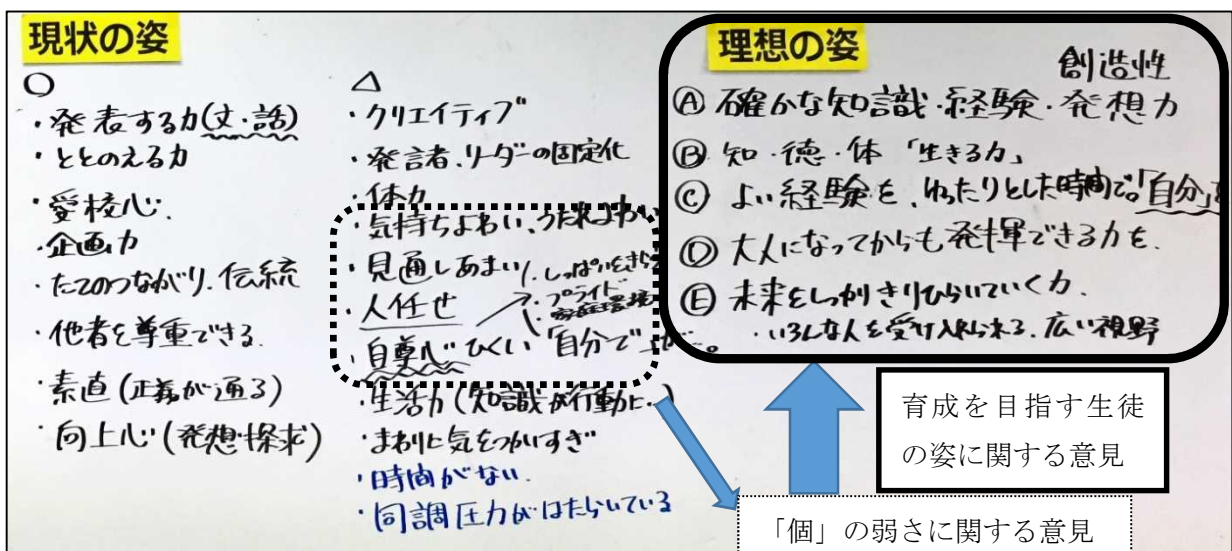 現状の姿
○
・発表する力(文・話)
・ととのえる力
・愛校心.
・企画力
・たてのつながり.伝統
・他者を尊重できる.
・素直(正義が通る)
・向上心(発想・探求)
△
・クリエイティブ
・発言者.リーダーの固定化
・体力
・気持ちよわい、うたれよわい
・見通しあまい
・しっぱいをきらう
・人任せ
・プライド
・家庭環境
・自尊心ひくい「自分で
・生活力(知識が行動に…)
・まわりに気をつかいすぎ
・時間がない.
・同調圧力がはたらいている
理想の姿
創造性
Ⓐ 確かな知識・経験・発想力
Ⓑ 知・徳・体「生きる力」
Ⓒ よい経験を、ゆったりとした時間で。「自分」を
Ⓓ 大人になってからも発揮できる力を.
Ⓔ 未来をしっかりきりひらいていく力.
・いろんな人を受け入れられる.広い視野
育成を目指す生徒
の姿に関する意見
「個」の弱さに関する意見